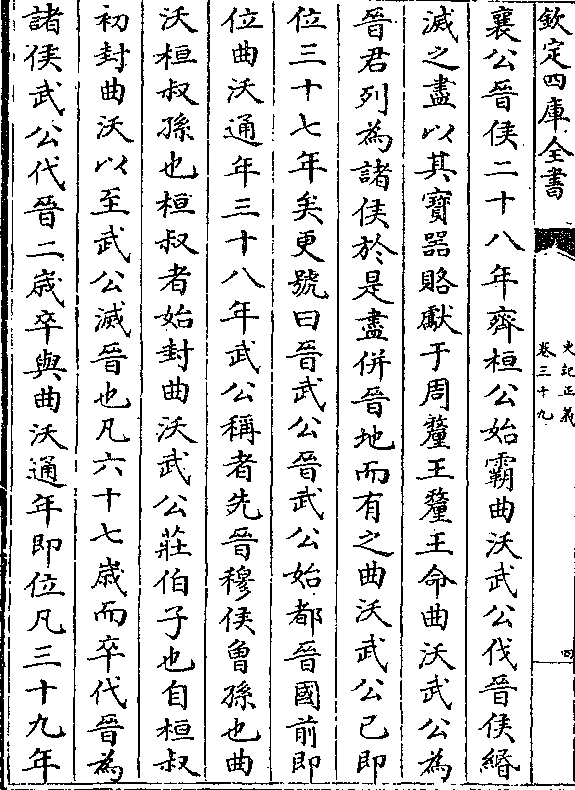 欽定四庫全書
史記正義
卷三十九
四
襄公晉侯二十八年齊桓公始霸曲沃武公伐晉侯緡
滅之盡以其寶器賂獻于周釐王釐王命曲沃武公為
晉君列為諸侯於是盡併晉地而有之曲沃武公已即
位三十七年矣更號曰晉武公晉武公始都晉國前即
位曲沃通年三十八年武公稱者先晉穆侯曾孫也曲
沃桓叔孫也桓叔者始封曲沃武公莊伯子也自桓叔
初封曲沃以至武公滅晉也凡六十七歲而卒代晉為
諸侯武公代晉二歲卒與曲沃通年即位凡三十九年